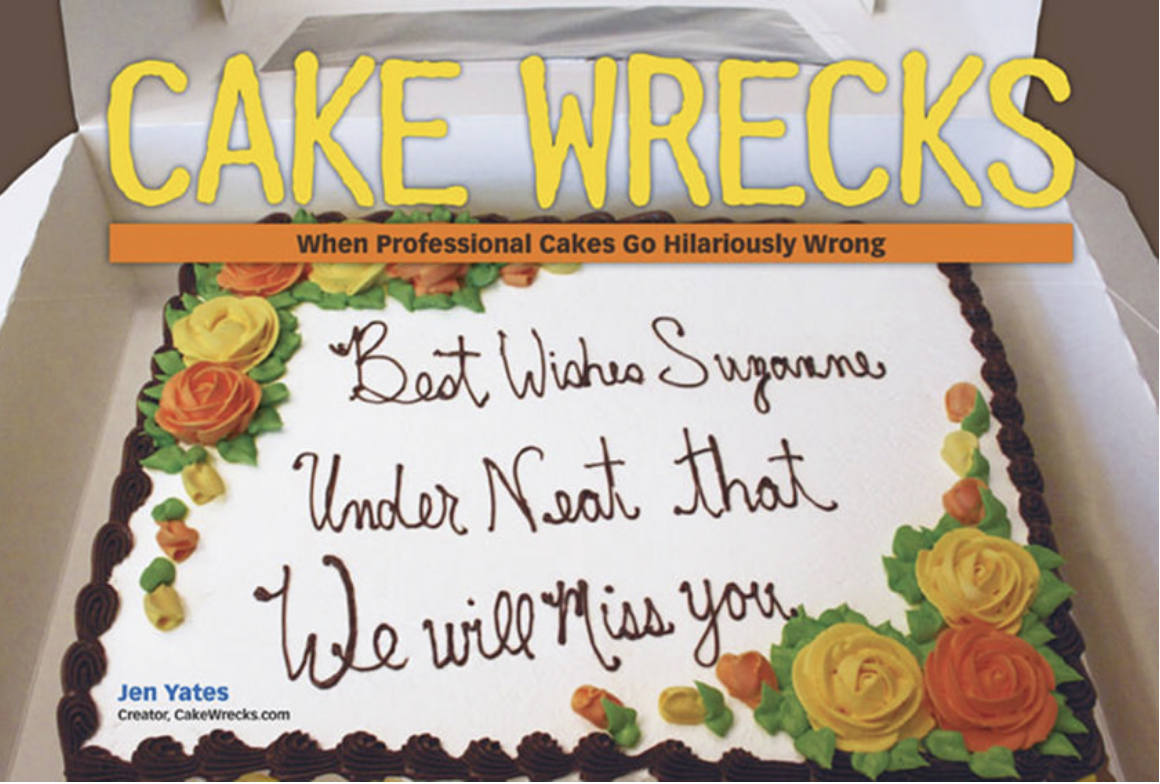 CAKE WRECKS
When Professional Cakes Go Hilariously Wrong
Best Wishes Suzanne
Under Neat that
We will Miss you
Jen Yates
Creator, CakeWrecks.com